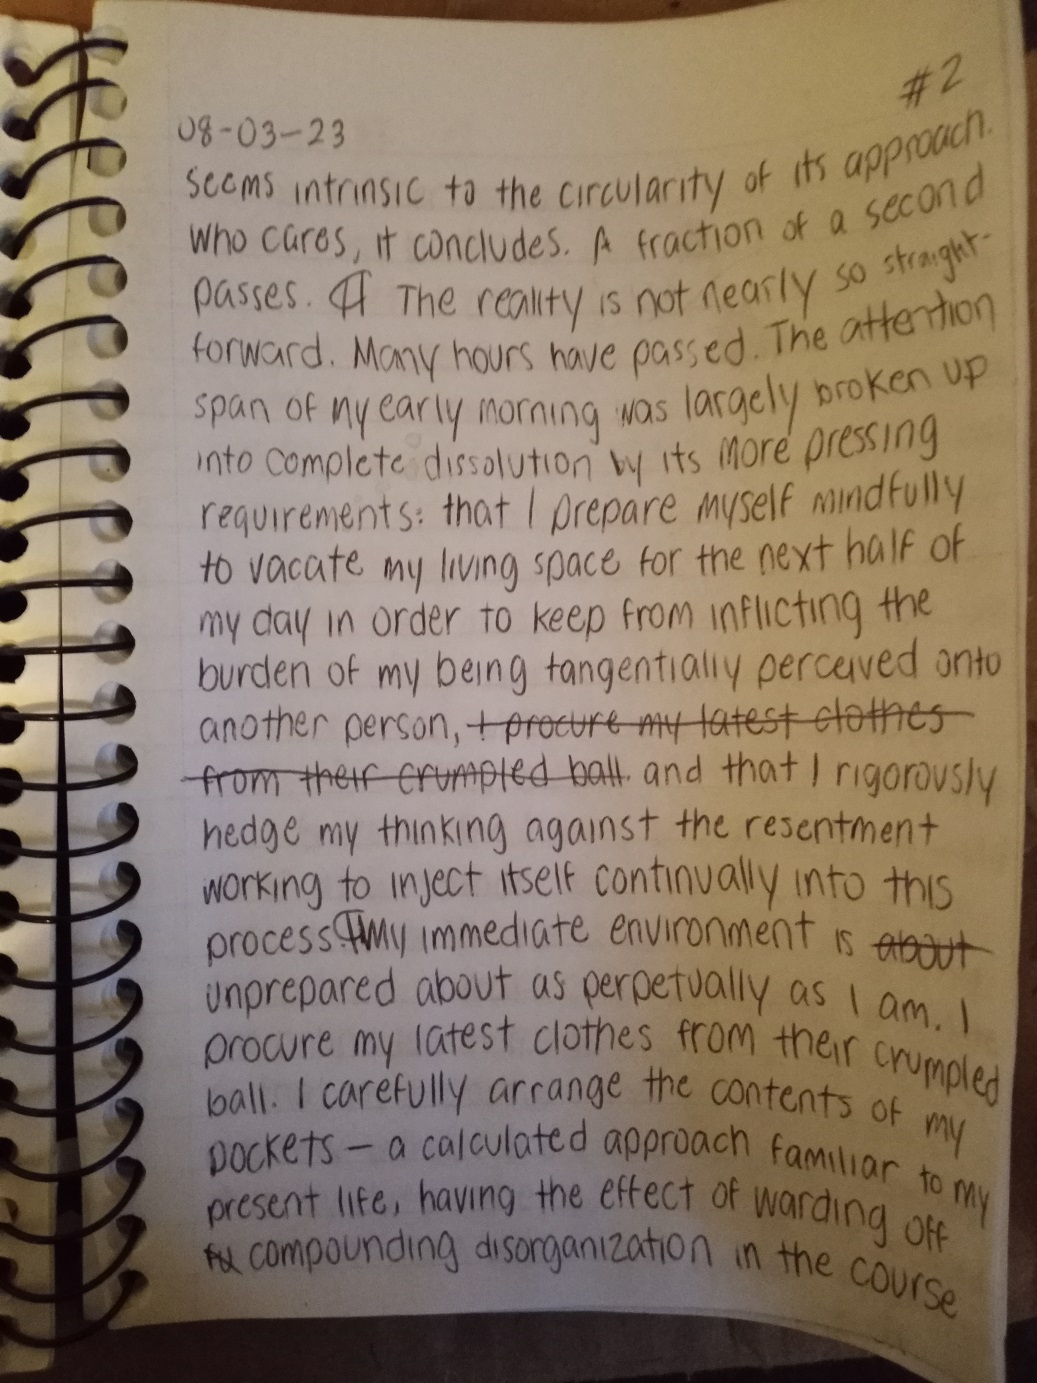 #2
08-03-23
seems intrinsic to the circularity of its approach.
Who cares, it concludes. A fraction of a second
passes. ¶ The reality is not nearly so straight-
forward. Many hours have passed. The attention
span of my early morning was largely broken up
into complete dissolution by its more pressing
requirements: that I prepare myself mindfully
to vacate my living space for the next half of
my day in order to keep from inflicting the
burden of my being tangentially perceived onto
another person, I procure my latest clothes
from their crumpled ball. and that I rigorously
hedge my thinking against the resentment
working to inject itself continually into this
process. ¶ My immediate environment is about
unprepared about as perpetually as I am. I
procure my latest clothes from their crumpled
ball. I carefully arrange the contents of my
pockets — a calculated approach familiar to my
present life, having the effect of warding off
compounding disorganization in the course